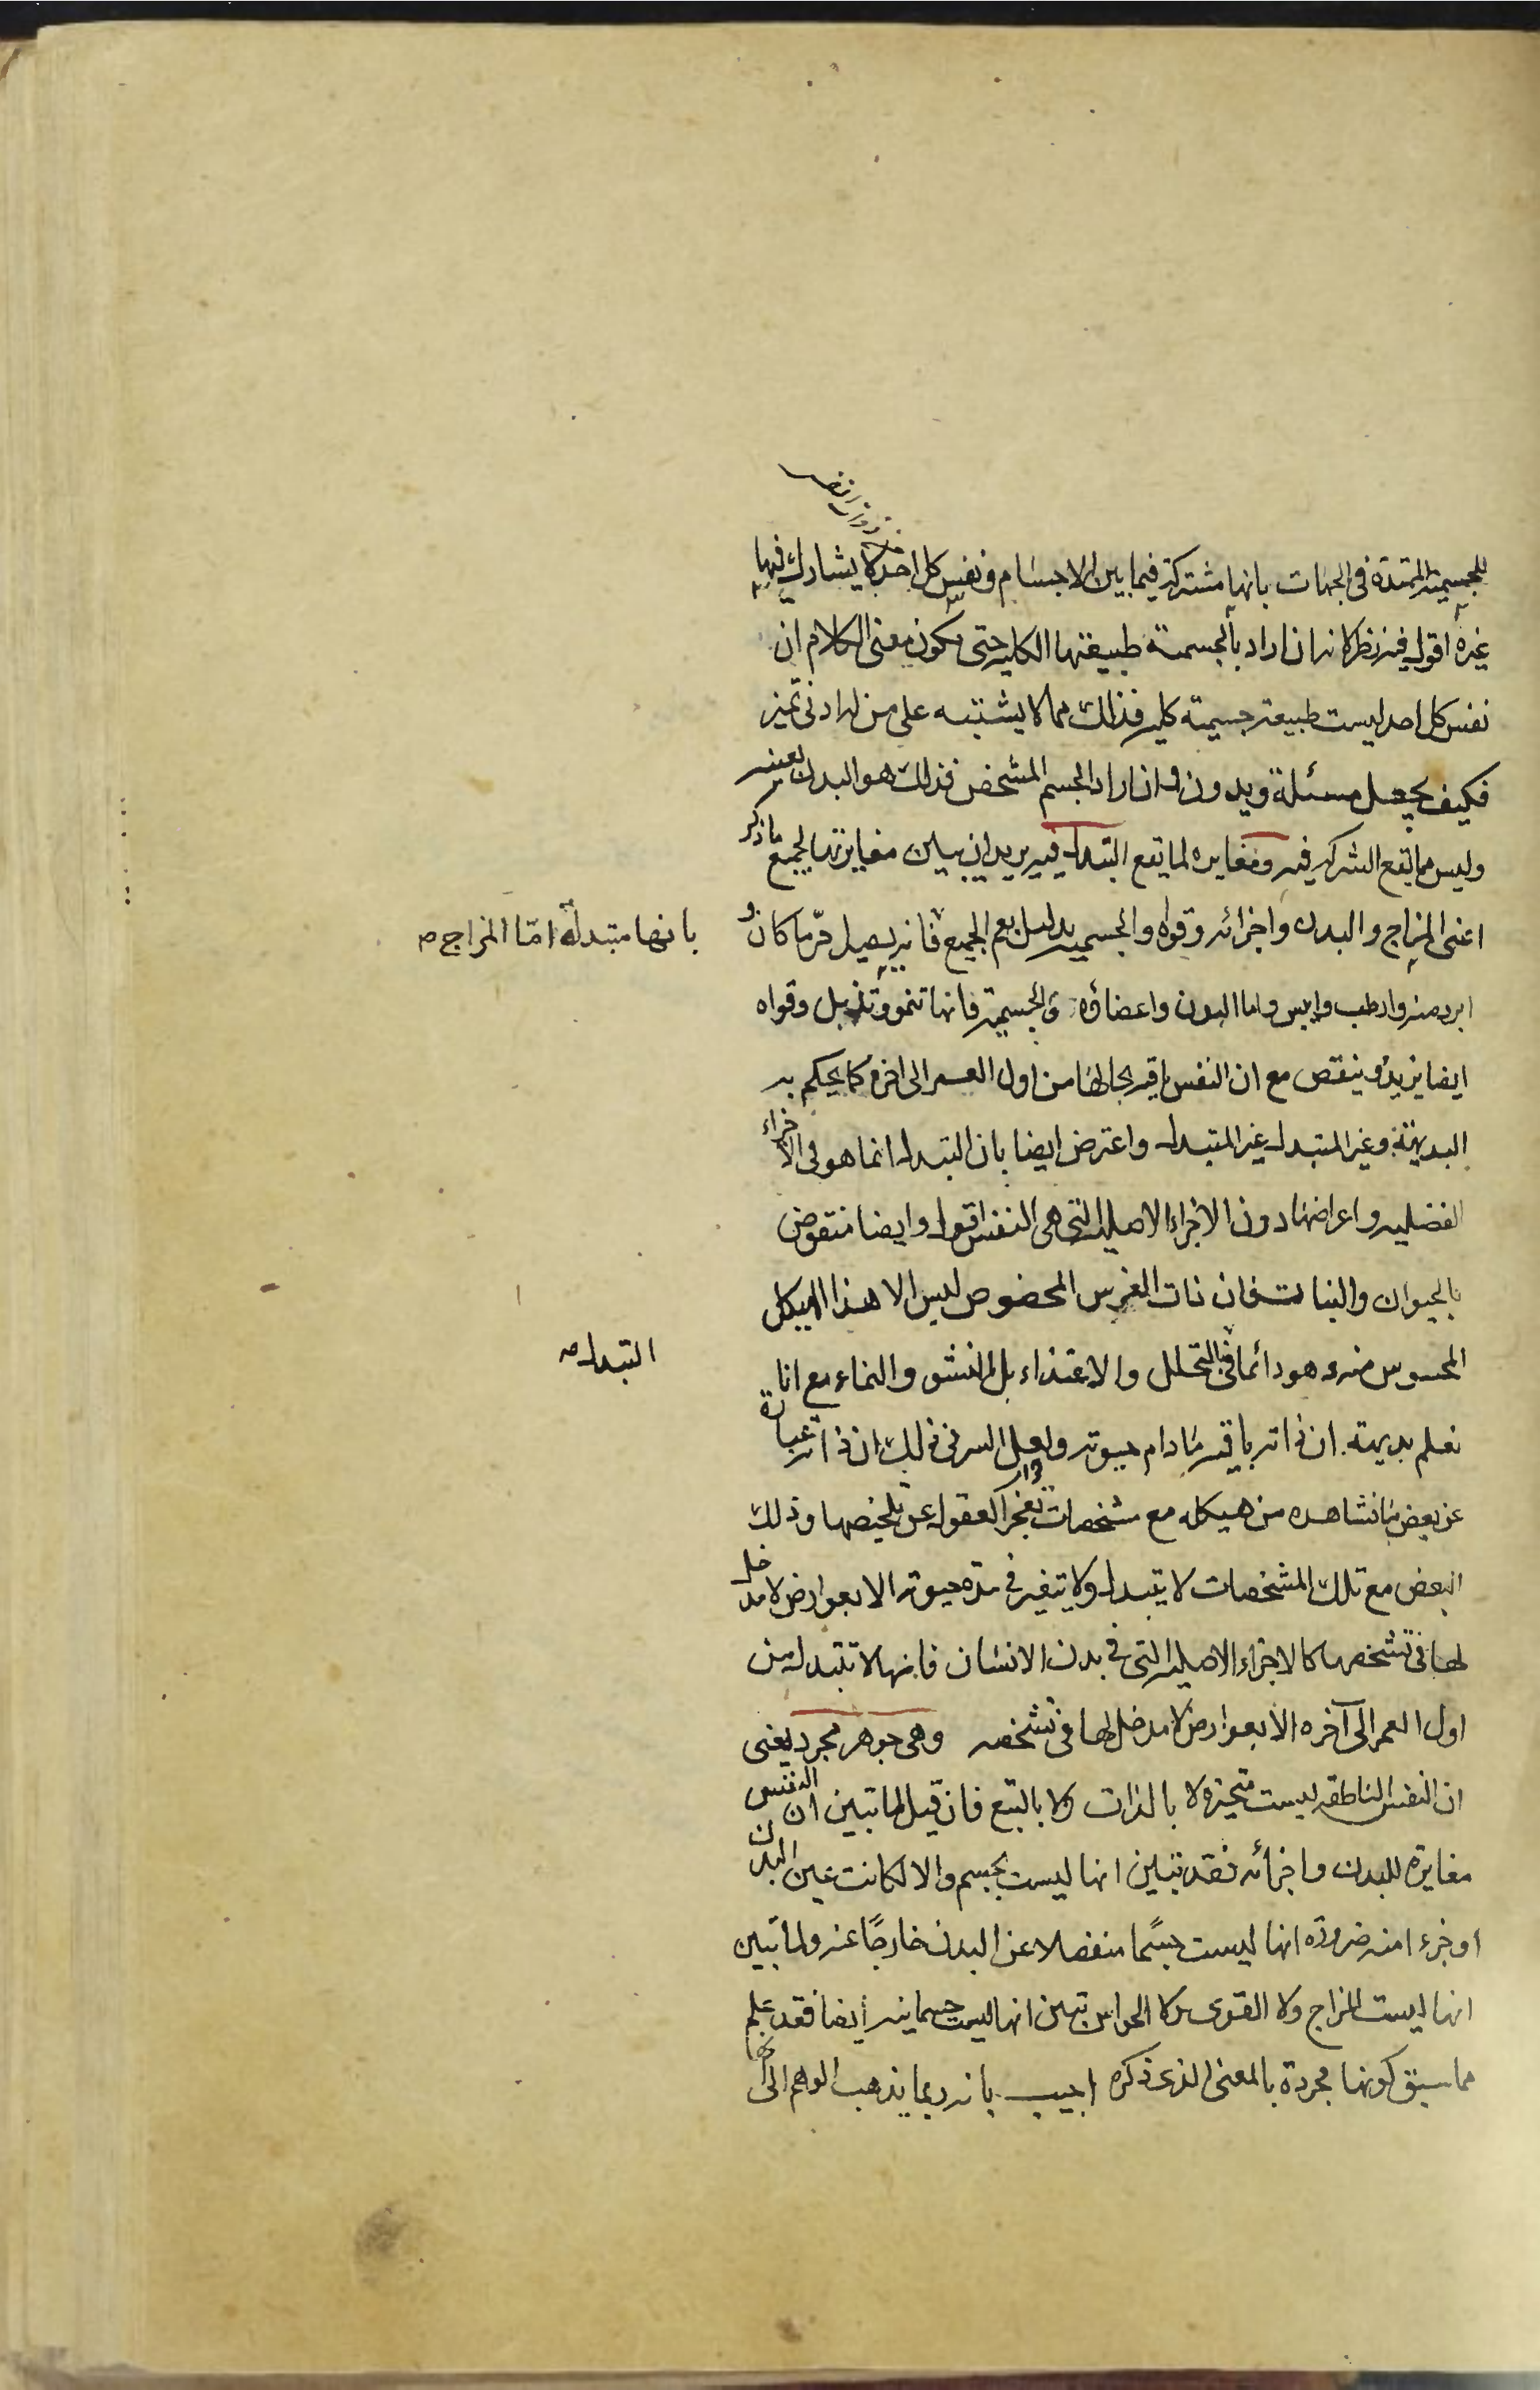 للجسمية الممتدة فى الجهات بانها مشتركة فيما بين الاجسام ونفس كل احد لا يشارك فيها
غيره اقول فيه نظر لانه ان اراد بالجسمية طبيعتها الكلية حتى يكون معنى الكلام ان
نفس كل احد ليست طبيعة جسمية كلية فذلك مما لا يشتبه على من له ادنى تميز
فكيف يجعل مسئلة ويدون وان اراد الجسم المشخص فذلك هو البدن بعينه
وليس مما يقع الشركة فيه ومغايرة لما يقع التبدل فيه يريد ان يبين مغايرتها لجميع ما ذكر
اعنى المزاج والبدن واجزائه وقواه والجسمية بدليل يعم الجميع فانه يصير حرّ ما كان
بانها متبدلة امّا المزاج صح
ابرد منه وارطب وايبس واما البدن واعضاؤه والجسمية فانها تنمو وتذبل وقواه
ايضا يزيد وينقص مع ان النفس باقية بحالها من اول العمر الى اخره كما يحكم به
البديهة وغير المتبدل غير المتبدل واعترض ايضا بان التبدل انما هو فى الاجزاء
الفضلية واعراضها دون الاجزاء الاصلية التى هى النفس اقول وايضا منقوض
بالحيوان والنبات فان ذات الفرس المخصوص ليس الا هذا الهيكل
المحسوس منه وهو دائما فى التحلل والاغتذاء بل النشو والنماء مع انا
التبدل صح
نعلم بديهة ان ذاته باقية مادام حيوته ولعل السر فى ذلك ان ذاته عبارة
عن بعض ما نشاهده من هيكله مع مشخصات تعجز العقول عن تلخيصها وذلك
البعض مع تلك المشخصات لا يتبدل ولا يتغير فى مدة حيوته الا بعوارض لا مدخل
لها فى تشخصها كالاجزاء الاصلية التى فى بدن الانسان فانها لا تتبدل من
اول العمر الى آخره الا بعوارض لا مدخل لها فى تشخصه وهى جوهر مجرد يعنى
ان النفس الناطقة ليست متحيزة لا بالذات ولا بالتبع فان قيل لما تبين ان النفس
مغايرة للبدن واجزائه فقد تبين انها ليست بجسم والا لكانت عين البدن
او جزءا منه ضرورة انها ليست جسمًا منفصلا عن البدن خارجًا عنه ولما تبين
انها ليست المزاج ولا القوى ولا الحواس تبين انها ليست جسمانية ايضا فقد علم
مما سبق كونها مجردة بالمعنى الذى ذكره اجيب بانه ربما يذهب الوهم الى انها